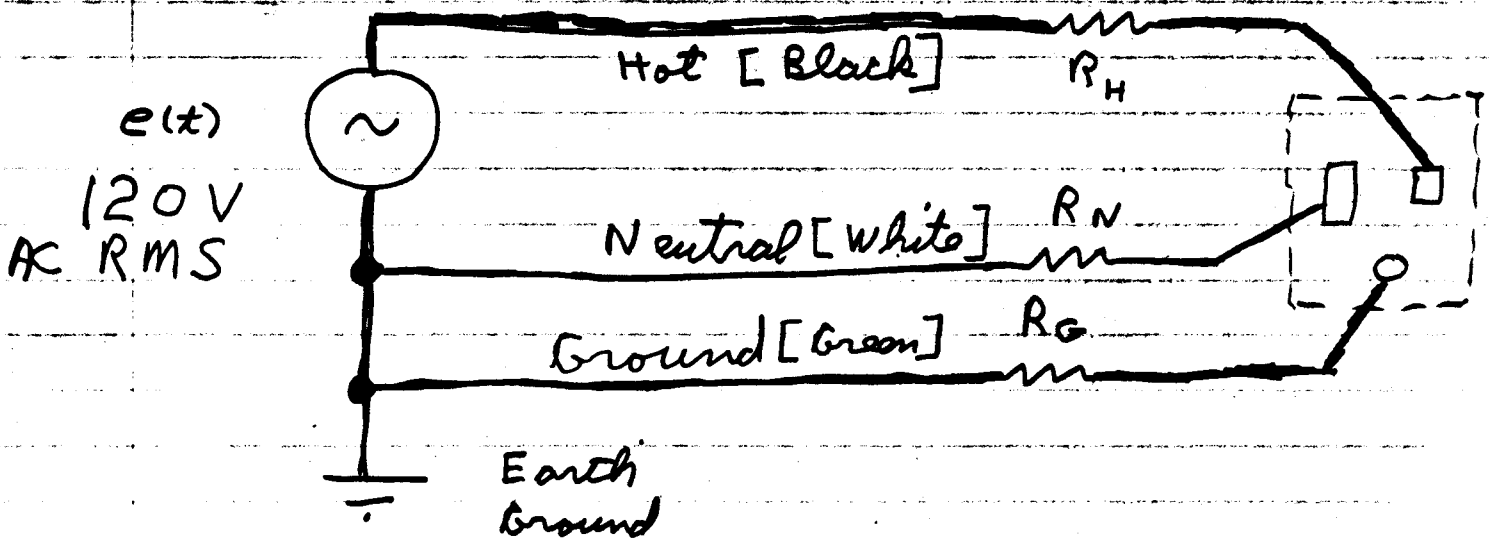 Hot [Black]
R_H
e(t)
120V
AC RMS
Neutral [White]
R_N
Ground [Green]
R_G
Earth
Ground